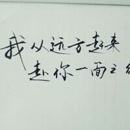 我从远方赶来
赴你一面之约